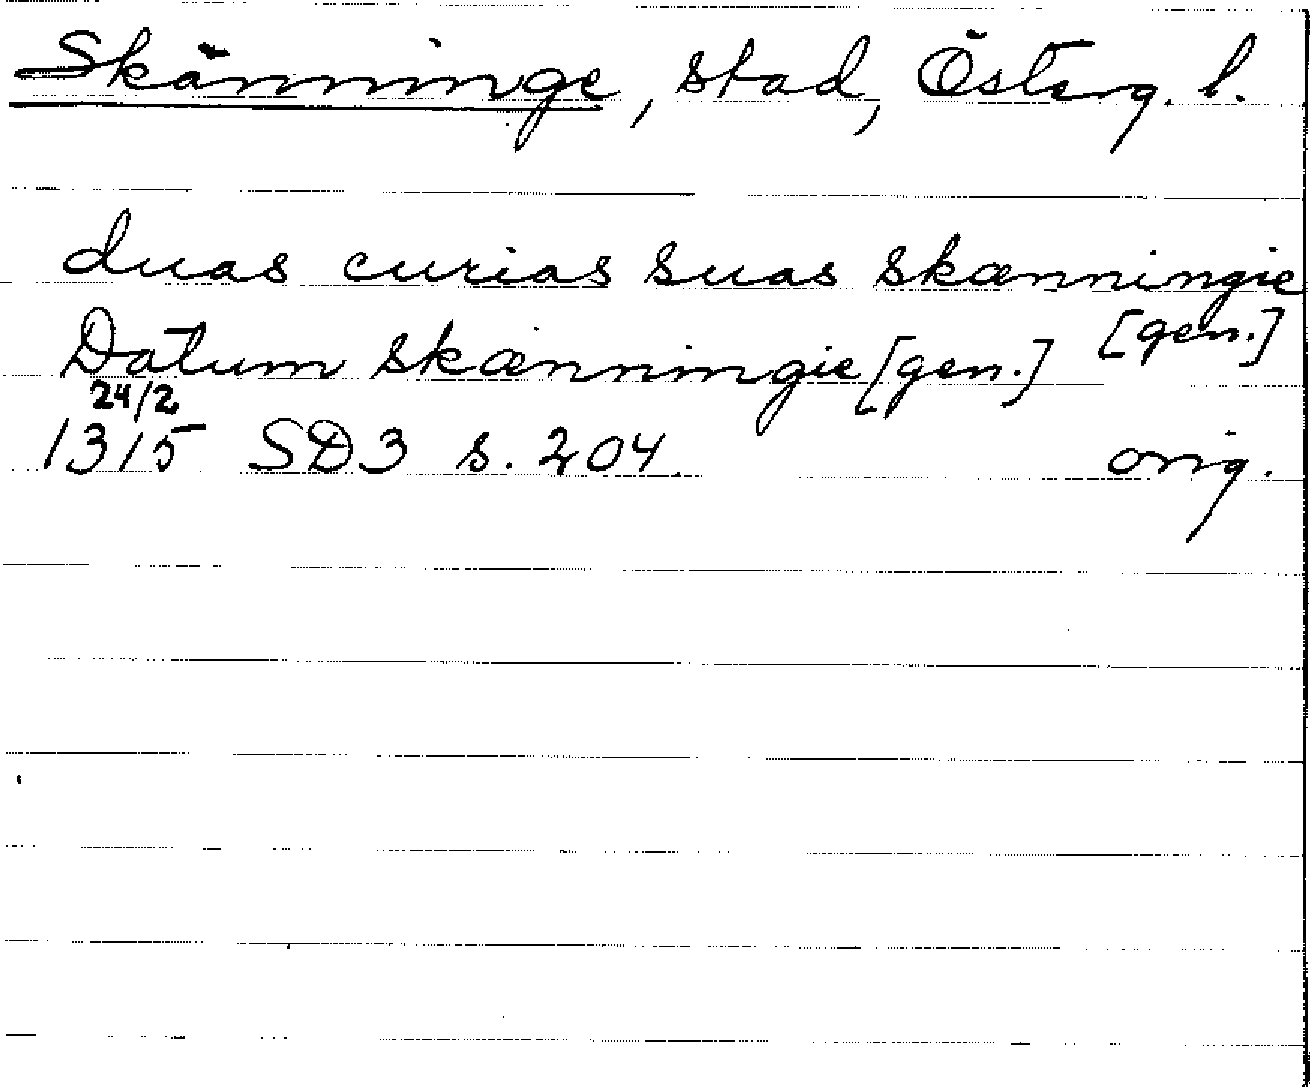 Skänninge, stad, Österg. l.
duas curias suas skænningie
[gen.]
Datum skænningie [gen.]
24/2
1315 SD3 s. 204 orig.